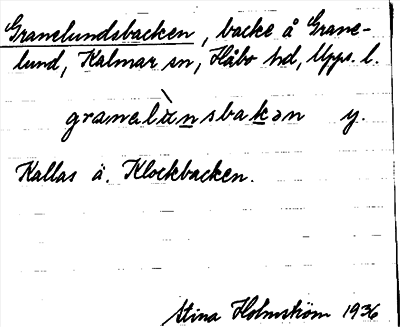 Granelundsbacken, backe å Grane-
lund, Kalmar sn, Håbo hd, Upps. l.
granelùnsbakən y.
Kallas ä. Klockbacken.
Stina Holmström 1936